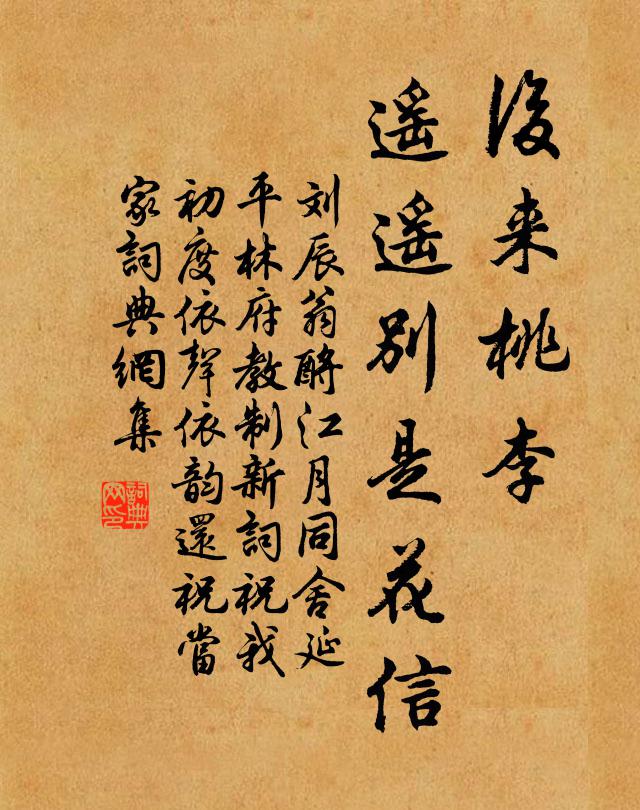 後来桃李
遥遥别是花信
刘辰翁酹江月同舍延
平林府教制新詞祝我
初度依聲依韵還祝當
家詞典網集
詞典
网印